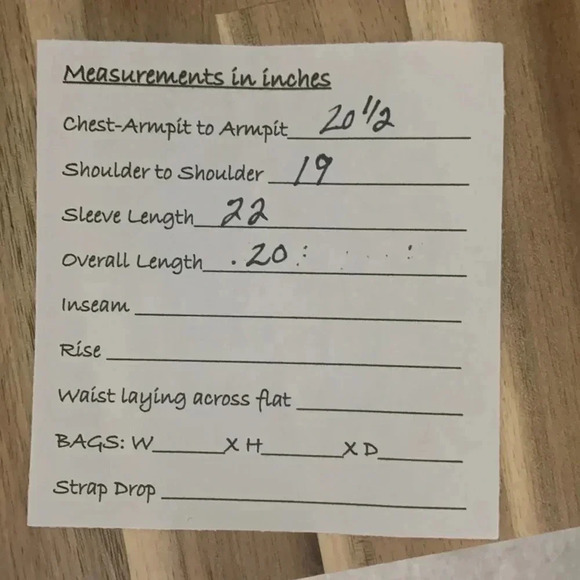 Measurements in inches
Chest-Armpit to Armpit 20 1/2
Shoulder to Shoulder 19
Sleeve Length 22
Overall Length 20
Inseam
Rise
Waist laying across flat
BAGS: W X H X D
Strap Drop